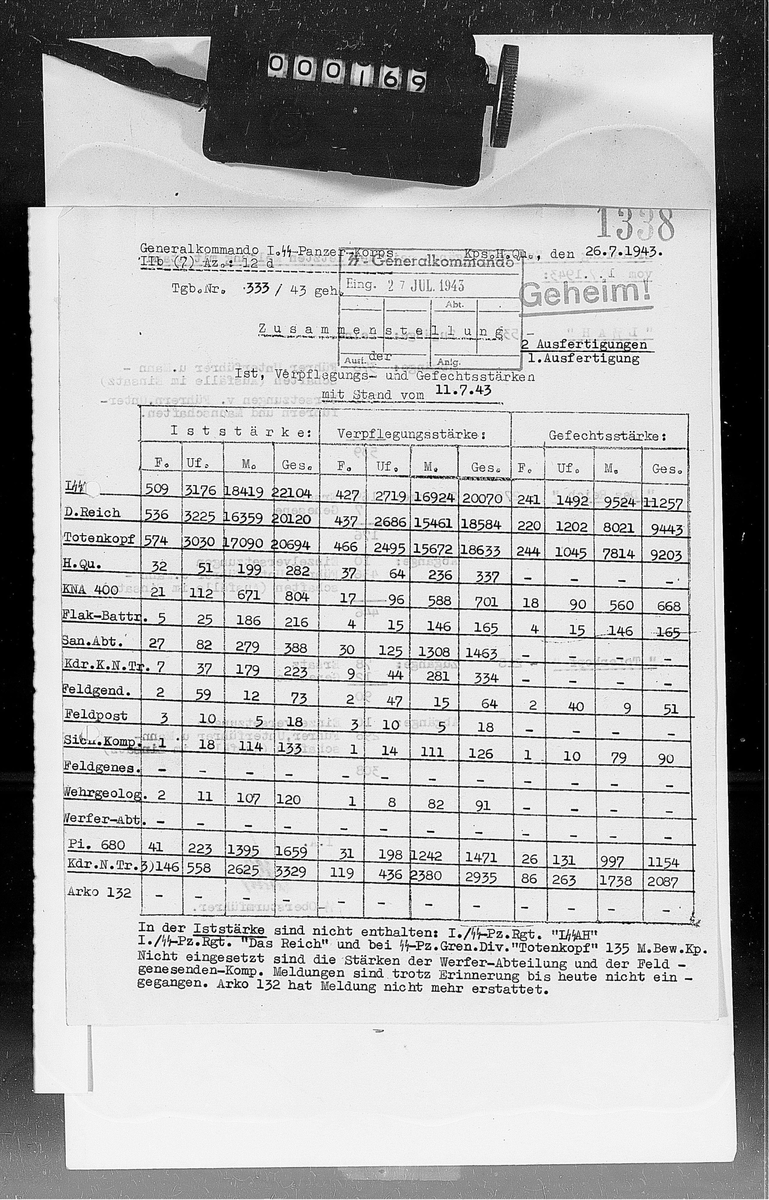 000169
1338
Generalkommando I.SS-Panzer-Korps Kps.H.Qu., den 26.7.1943.
IIb (7) Az.: 12 d
SS Generalkommando
Eing. 27 JUL 1943
Abt.
Anlg.
Geheim!
Tgb.Nr. 333 / 43 geh.
Zusammenstellung
2 Ausfertigungen
1.Ausfertigung
der
Ist, Verpflegungs- und Gefechtsstärken
mit Stand vom 11.7.43
Iststärke: Verpflegungsstärke: Gefechtsstärke:
F. Uf. M. Ges. F. Uf. M. Ges. F. Uf. M. Ges.
LSS 509 3176 18419 22104 427 2719 16924 20070 241 1492 9524 11257
D.Reich 536 3225 16359 20120 437 2686 15461 18584 220 1202 8021 9443
Totenkopf 574 3030 17090 20694 466 2495 15672 18633 244 1045 7814 9203
H.Qu. 32 51 199 282 37 64 236 337 - - - -
KNA 400 21 112 671 804 17 96 588 701 18 90 560 668
Flak-Battr. 5 25 186 216 4 15 146 165 4 15 146 165
San.Abt. 27 82 279 388 30 125 1308 1463 - - - -
Kdr.K.N.Tr. 7 37 179 223 9 44 281 334 - - - -
Feldgend. 2 59 12 73 2 47 15 64 2 40 9 51
Feldpost 3 10 5 18 3 10 5 18 - - - -
Sich.Komp. 1 18 114 133 1 14 111 126 1 10 79 90
Feldgenes. - - - - - - - - - - - -
Wehrgeolog. 2 11 107 120 1 8 82 91 - - - -
Werfer-Abt. - - - - - - - - - - - -
Pi. 680 41 223 1395 1659 31 198 1242 1471 26 131 997 1154
Kdr.N.Tr.3) 146 558 2625 3329 119 436 2380 2935 86 263 1738 2087
Arko 132 - - - - - - - - - - - -
In der Iststärke sind nicht enthalten: I./SS-Pz.Rgt. "LSSAH"
I./SS-Pz.Rgt. "Das Reich" und bei SS-Pz.Gren.Div."Totenkopf" 135 M.Bew.Kp.
Nicht eingesetzt sind die Stärken der Werfer-Abteilung und der Feld -
genesenden-Komp. Meldungen sind trotz Erinnerung bis heute nicht ein -
gegangen. Arko 132 hat Meldung nicht mehr erstattet.